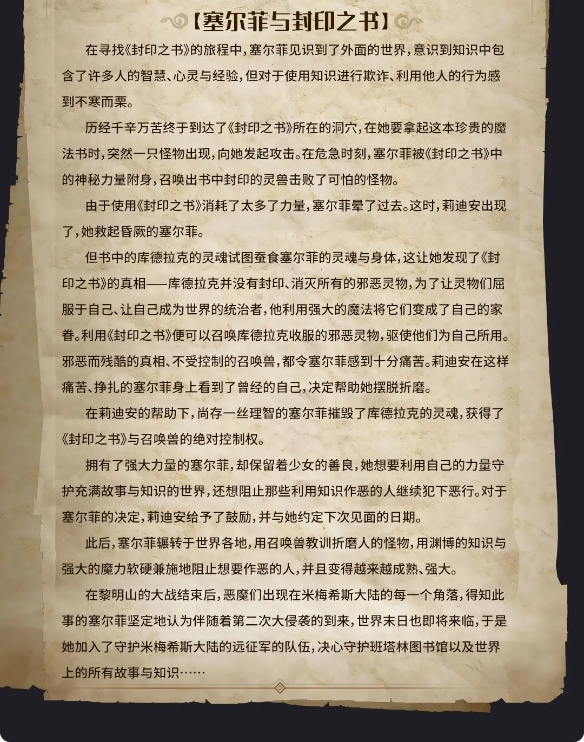 【塞尔菲与封印之书】
在寻找《封印之书》的旅程中，塞尔菲见识到了外面的世界，意识到知识中包
含了许多人的智慧、心灵与经验，但对于使用知识进行欺诈、利用他人的行为感
到不寒而栗。
历经千辛万苦终于到达了《封印之书》所在的洞穴，在她要拿起这本珍贵的魔
法书时，突然一只怪物出现，向她发起攻击。在危急时刻，塞尔菲被《封印之书》中
的神秘力量附身，召唤出书中封印的灵兽击败了可怕的怪物。
由于使用《封印之书》消耗了太多了力量，塞尔菲晕了过去。这时，莉迪安出现
了，她救起昏厥的塞尔菲。
但书中的库德拉克的灵魂试图蚕食塞尔菲的灵魂与身体，这让她发现了《封
印之书》的真相——库德拉克并没有封印、消灭所有的邪恶灵物，为了让灵物们屈
服于自己、让自己成为世界的统治者，他利用强大的魔法将它们变成了自己的家
眷。利用《封印之书》便可以召唤库德拉克收服的邪恶灵物，驱使他们为自己所用。
邪恶而残酷的真相、不受控制的召唤兽，都令塞尔菲感到十分痛苦。莉迪安在这样
痛苦、挣扎的塞尔菲身上看到了曾经的自己，决定帮助她摆脱折磨。
在莉迪安的帮助下，尚存一丝理智的塞尔菲摧毁了库德拉克的灵魂，获得了
《封印之书》与召唤兽的绝对控制权。
拥有了强大力量的塞尔菲，却保留着少女的善良，她想要利用自己的力量守
护充满故事与知识的世界，还想阻止那些利用知识作恶的人继续犯下恶行。对于
塞尔菲的决定，莉迪安给予了鼓励，并与她约定下次见面的日期。
此后，塞尔菲辗转于世界各地，用召唤兽教训折磨人的怪物，用渊博的知识与
强大的魔力软硬兼施地阻止想要作恶的人，并且变得越来越成熟、强大。
在黎明山的大战结束后，恶魔们出现在米梅希斯大陆的每一个角落，得知此
事的塞尔菲坚定地认为伴随着第二次大侵袭的到来，世界末日也即将来临，于是
她加入了守护米梅希斯大陆的远征军的队伍，决心守护班塔林图书馆以及世界
上的所有故事与知识······